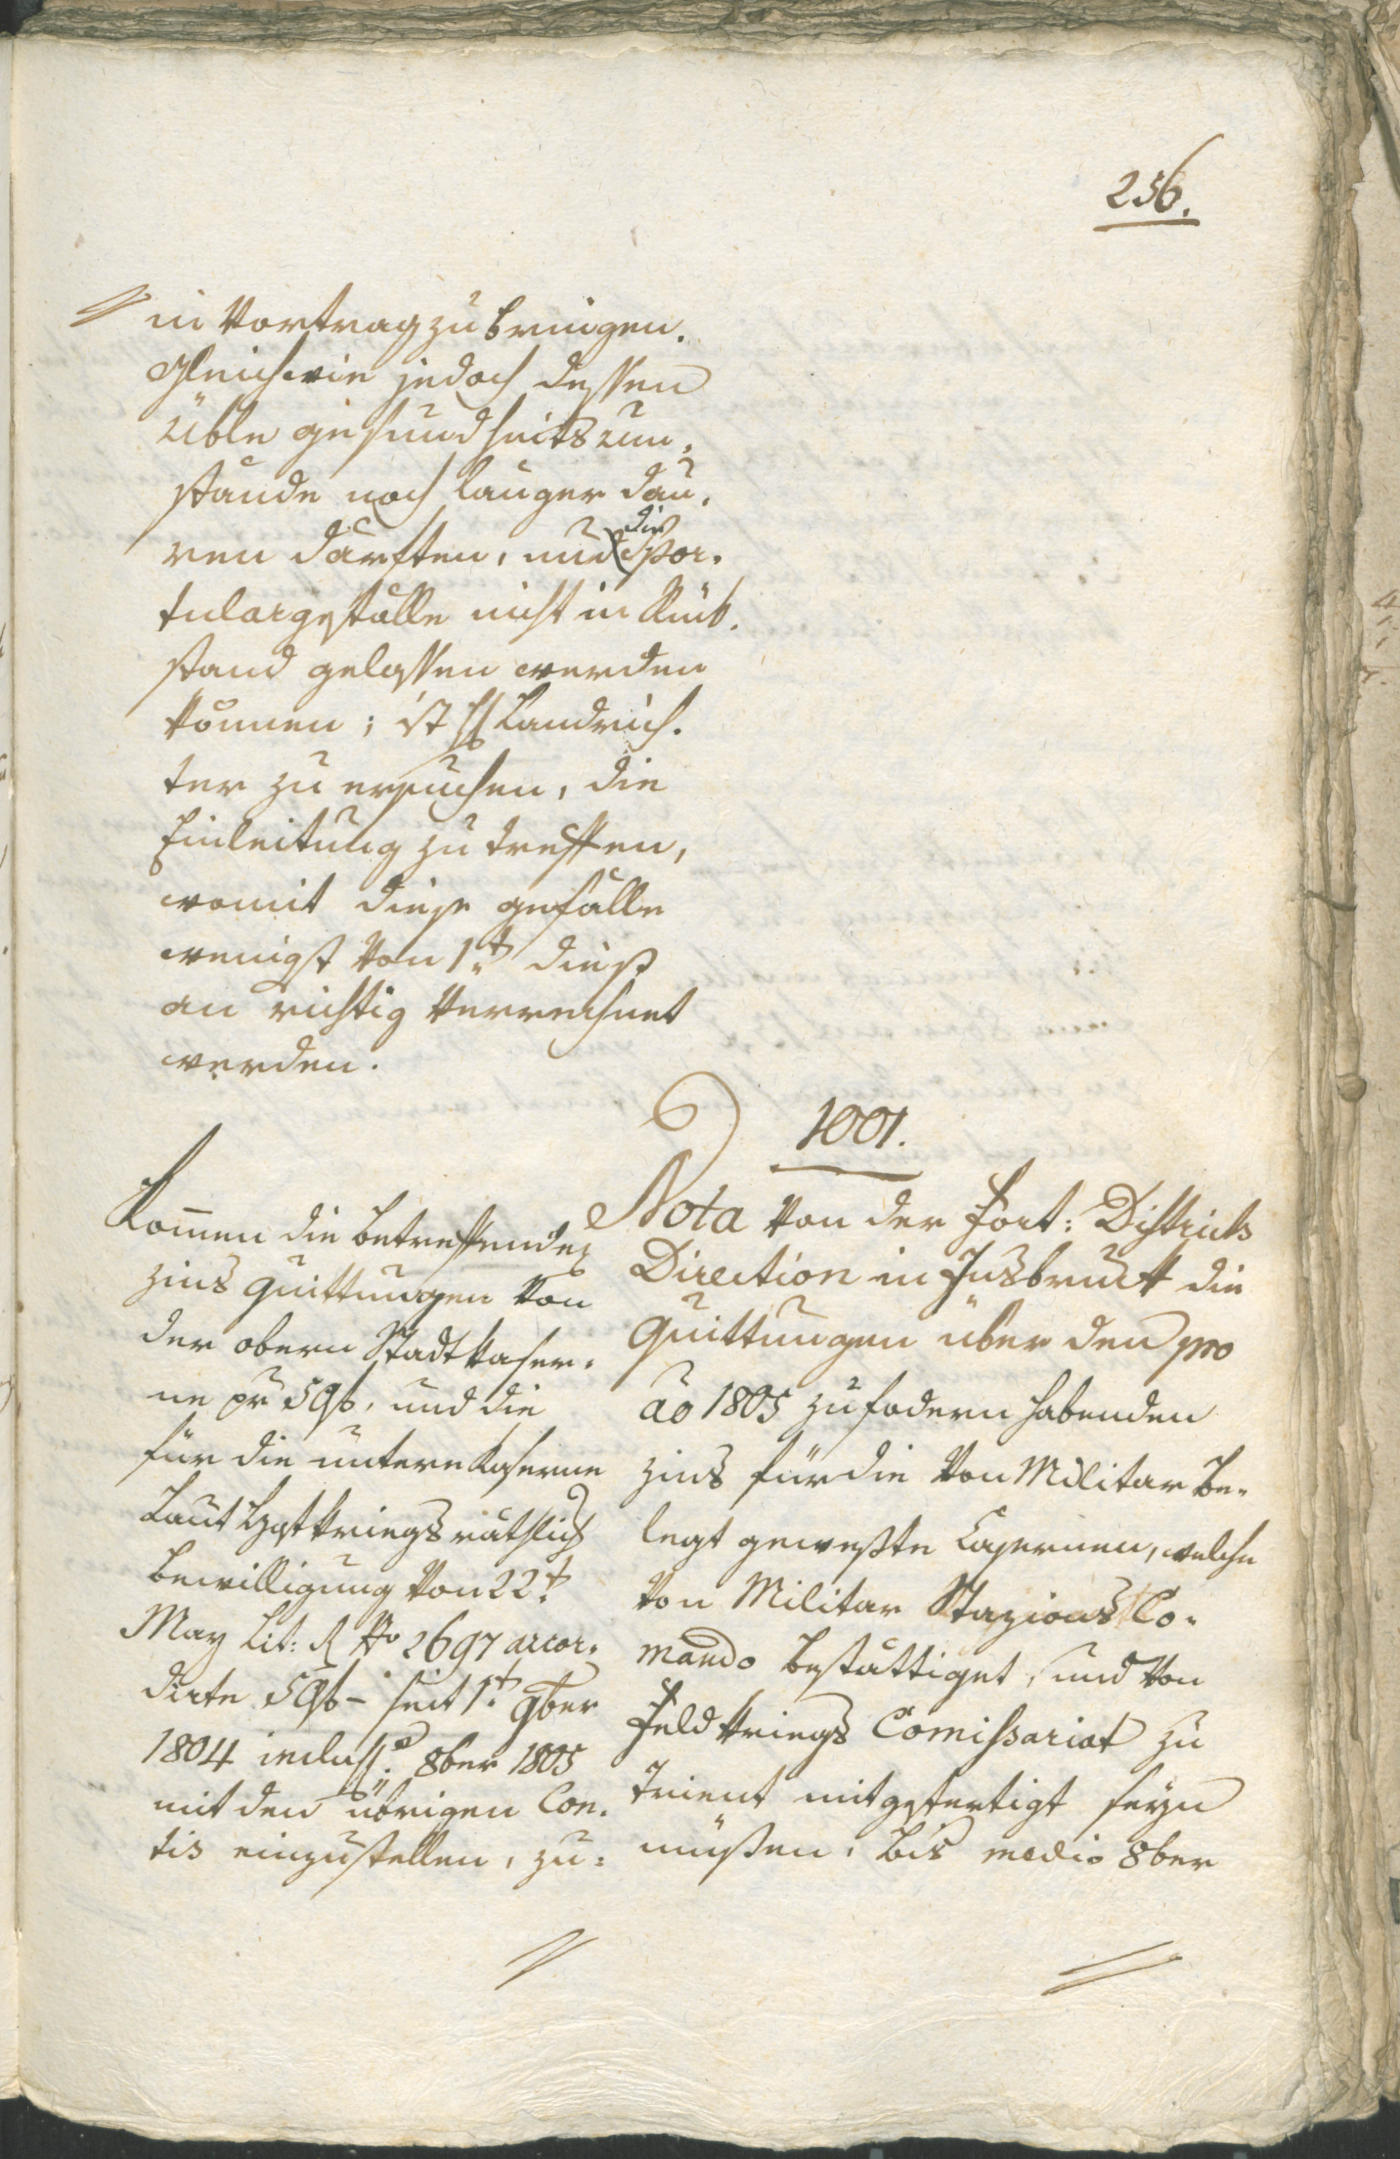 256.
in Vortrag zu bringen.
Gleichwie jedoch dessen
üble gesundheitsum¬
stände noch länger dau¬
ren därften, und die Spor¬
tulargefälle nicht in Rük¬
stand gelassen werden
können; ist H Landrich¬
ter zu ersuchen, die
Einleitung zu treffen,
womit diese gefälle
wenigst von 1t dieß
an richtig verrechnet
werden.
1001.
Kom̄en die betreffenden
zins Quittungen von
der obern Stadtkaser¬
ne pr 5 9b, und die
für die untere Kaserne
Laut hofkriegsräthlich
bewilligung von 22t
May Lit: R No 2697 accor¬
dirte 5 9b – seit 1t 9ber
1804 inclus. 8ber 1805
mit den übrigen Con¬
tis einzustellen, zu=
Nota von der Fort: Districts
Direction in Insbruck die
Quittungen über den pro
ao 1805 zu fodern habenden
zins für die von Militar be¬
legt geweßte Casernen, welche
von Militar Stazions Co¬
mando bestättiget, und von
Feldkriegs Comissariat zu
Trient mitgefertigt seyn
müßen, bis medio 8ber